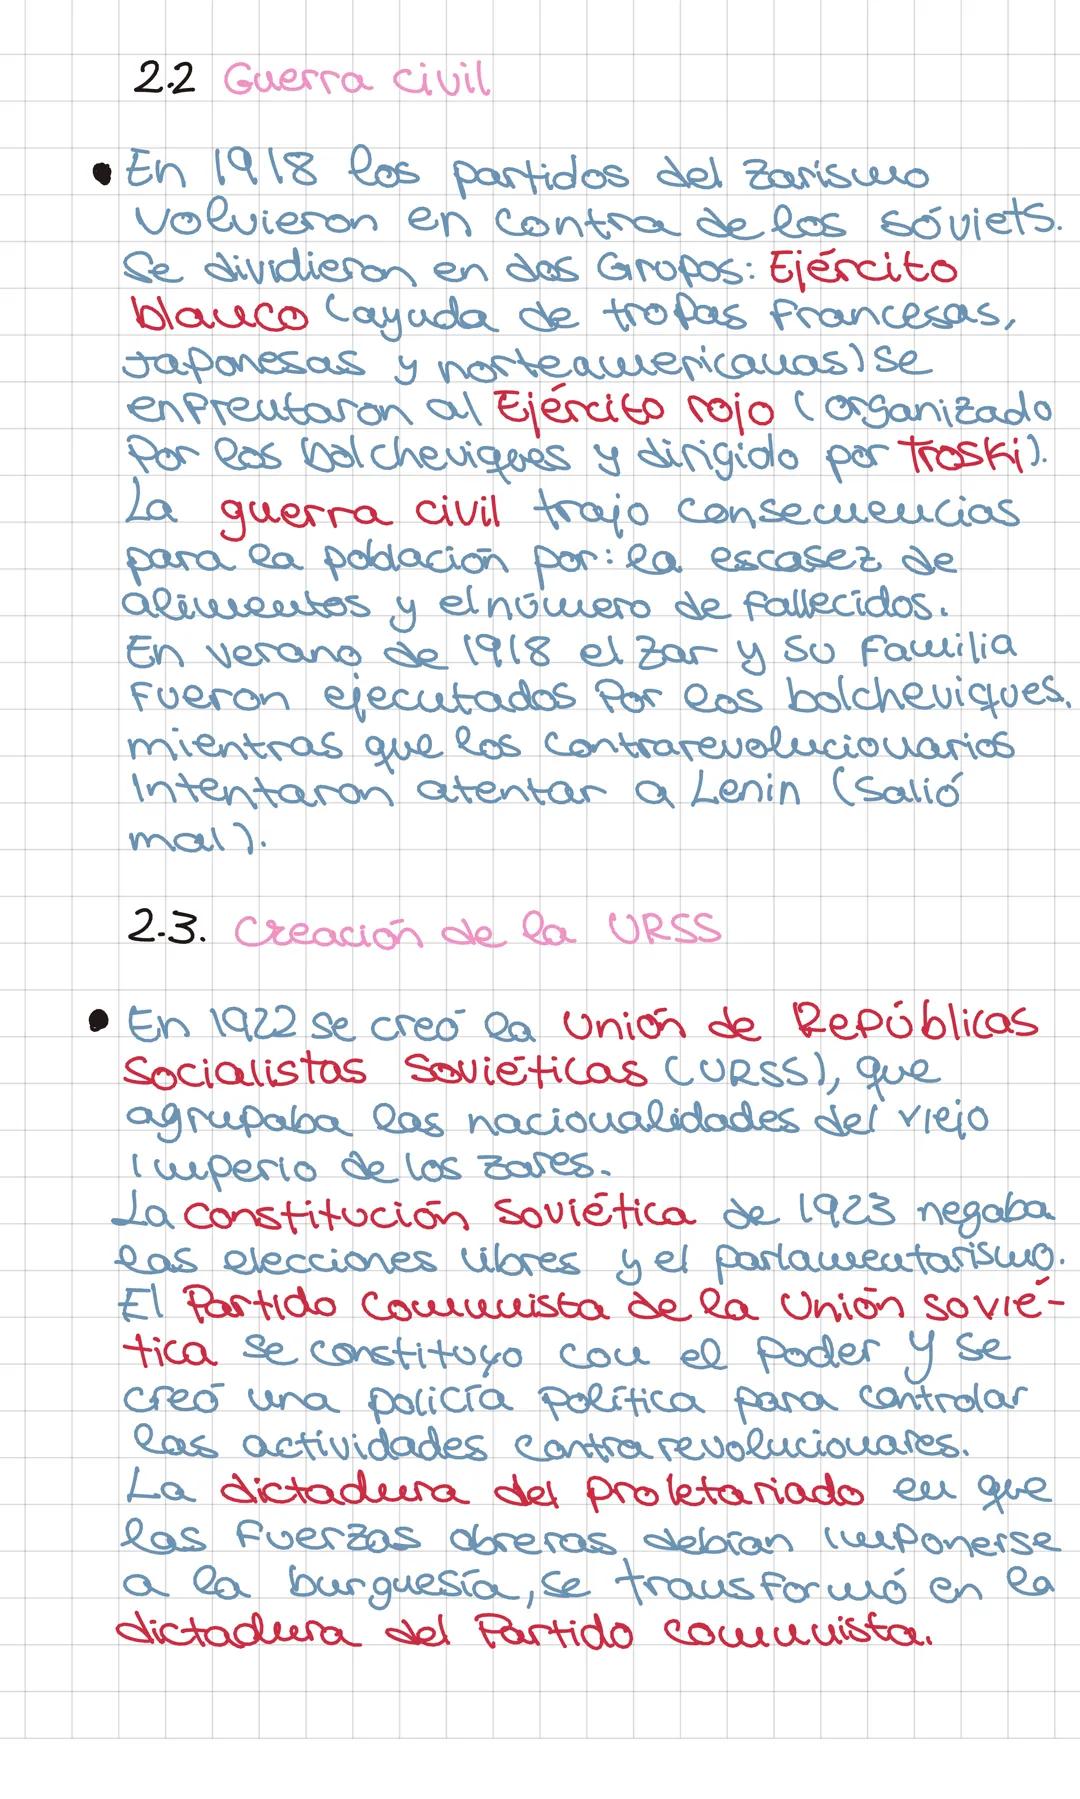 2.2 Guerra civil
• En 1918 los partidos del zarismo
volvieron en contra de los sóviets.
Se dividieron en dos Grupos: Ejército
blanco (ayuda de tropas francesas,
Japonesas y norteamericanas) se
enfrentaron al Ejército rojo (organizado
Por los bolcheviques y dirigido por Troski).
La guerra civil trajo consecuencias
para la población por: la escasez de
alimentos y el número de fallecidos.
En verano de 1918 el zar y su familia
Fueron ejecutados Por los bolcheviques,
mientras que los contrarevolucionarios
Intentaron atentar a Lenin (salió
mal).
2.3. Creación de la URSS
• En 1922 se creó la Unión de Repúblicas
Socialistas Soviéticas (URSS), que
agrupaba las nacionalidades del viejo
Imperio de los zares.
La Constitución Soviética de 1923 negaba
las elecciones libres y el parlamentarismo.
El Partido Comunista de la Unión sovié-
tica se constituyo con el Poder y se
creó una policía política para controlar
las actividades contrarevolucionares.
La dictadura del Proletariado en que
las fuerzas obreras debían imponerse
a la burguesía, se transformó en la
dictadura del Partido comunista.